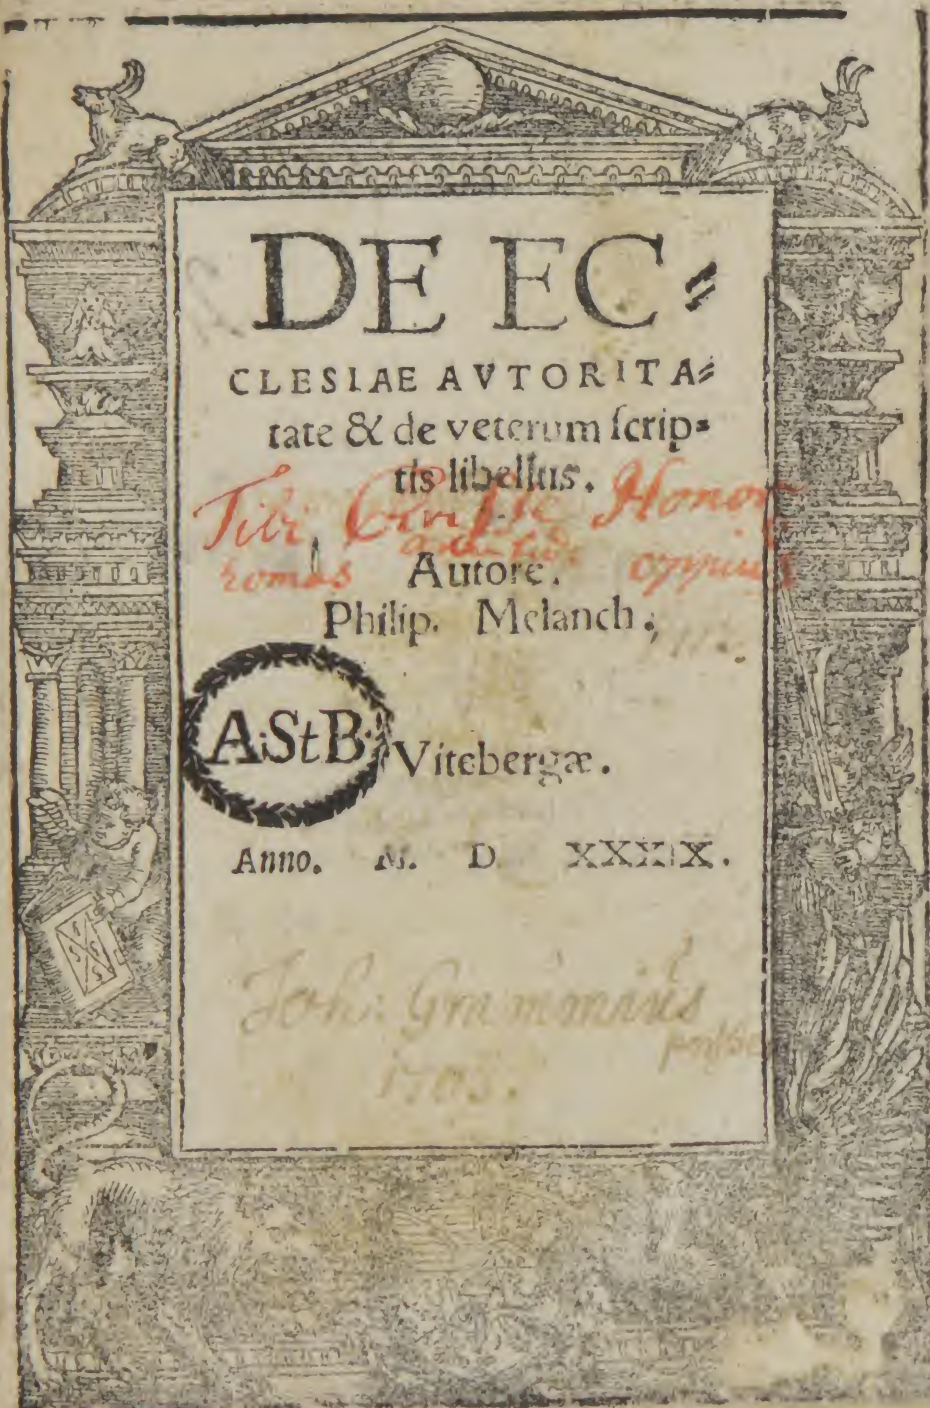 DE EC⸗
CLESIAE AVTORITA⸗
tate & de veterum ſcrip⸗
tis libellus.
Tibi Chriſte Honor
Autore.
Philip. Melanch.
A.StB.
Vitebergæ.
Anno. M. D XXXIX.
Joh: Grummius
1703.